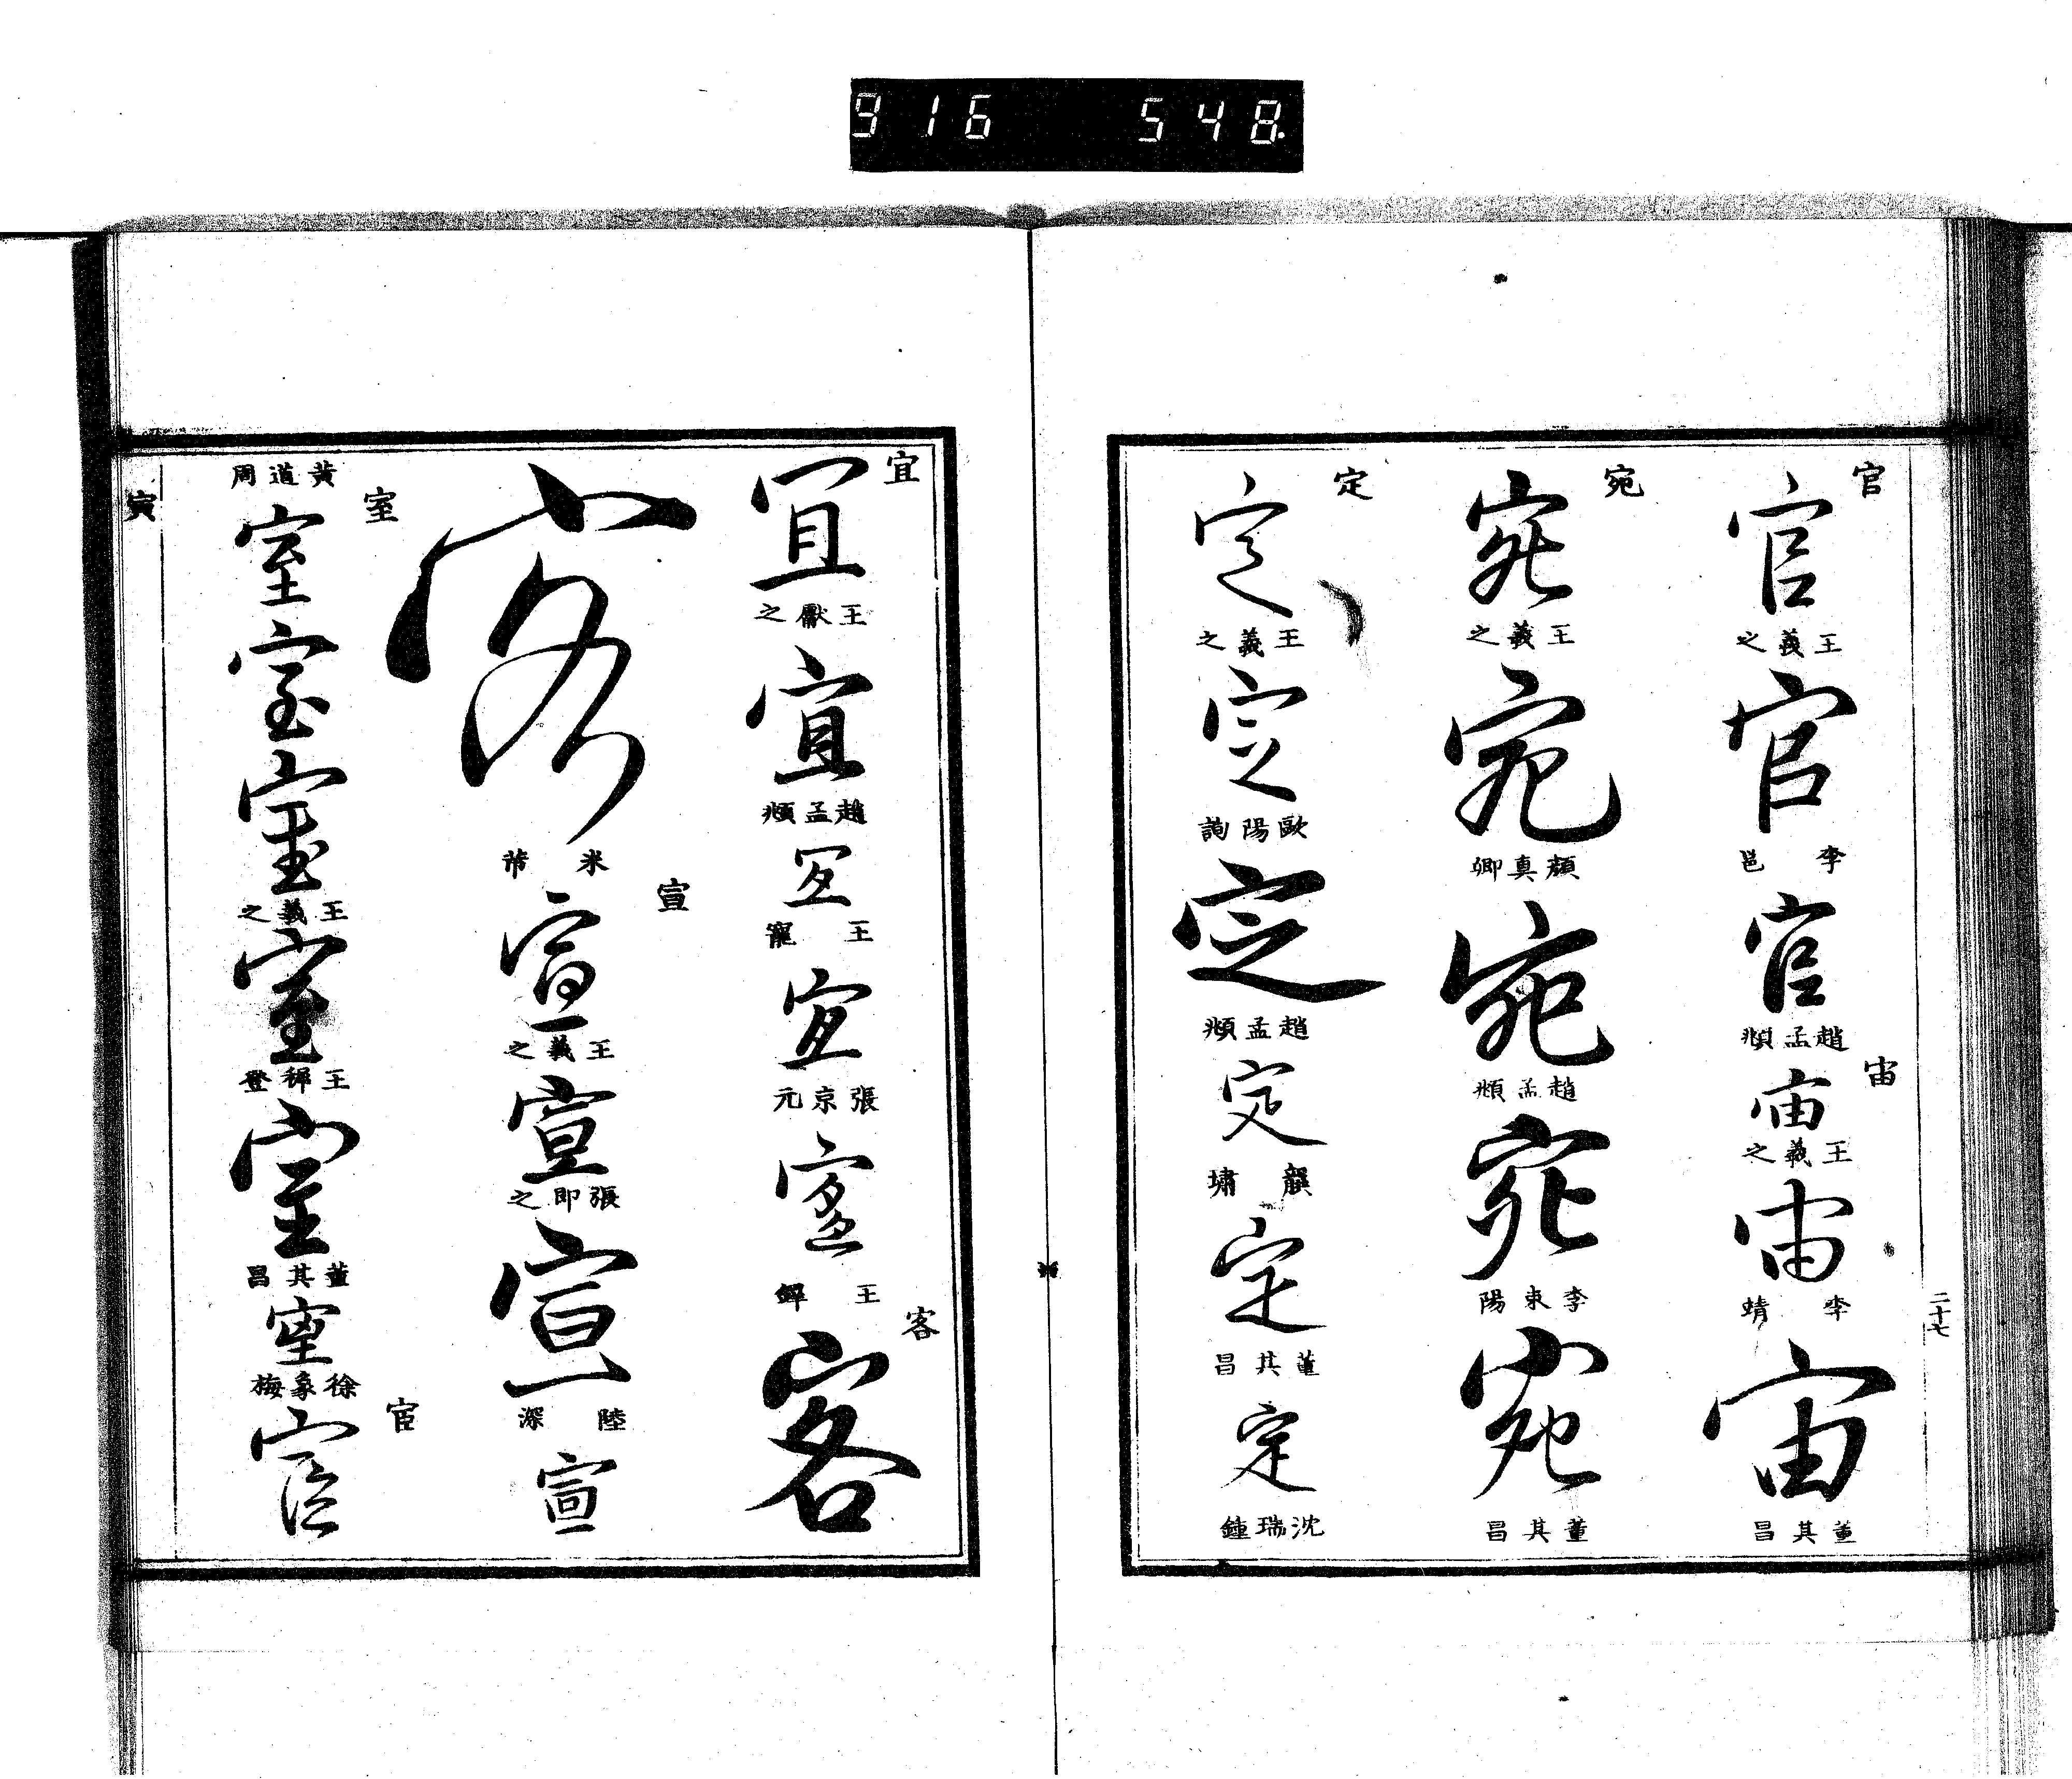 916 548
官
官
王羲之
官
李邕
官
趙孟頫
宙
宙
王羲之
宙
李靖
宙
董其昌
二十七
宛
宛
王羲之
宛
顏真卿
宛
趙孟頫
宛
李東陽
宛
董其昌
定
定
王羲之
定
歐陽詢
定
趙孟頫
定
定
董其昌
定
沈瑞鍾
宜
宜
王獻之
宜
趙孟頫
宜
王寵
宜
張京元
宜
王鐸
客
客
客
米芾
宣
宣
王羲之
宣
張即之
宣
陸深
宣
黃道周
室
室
室
室
王羲之
室
王穉登
室
董其昌
室
徐象梅
宦
宦
寅